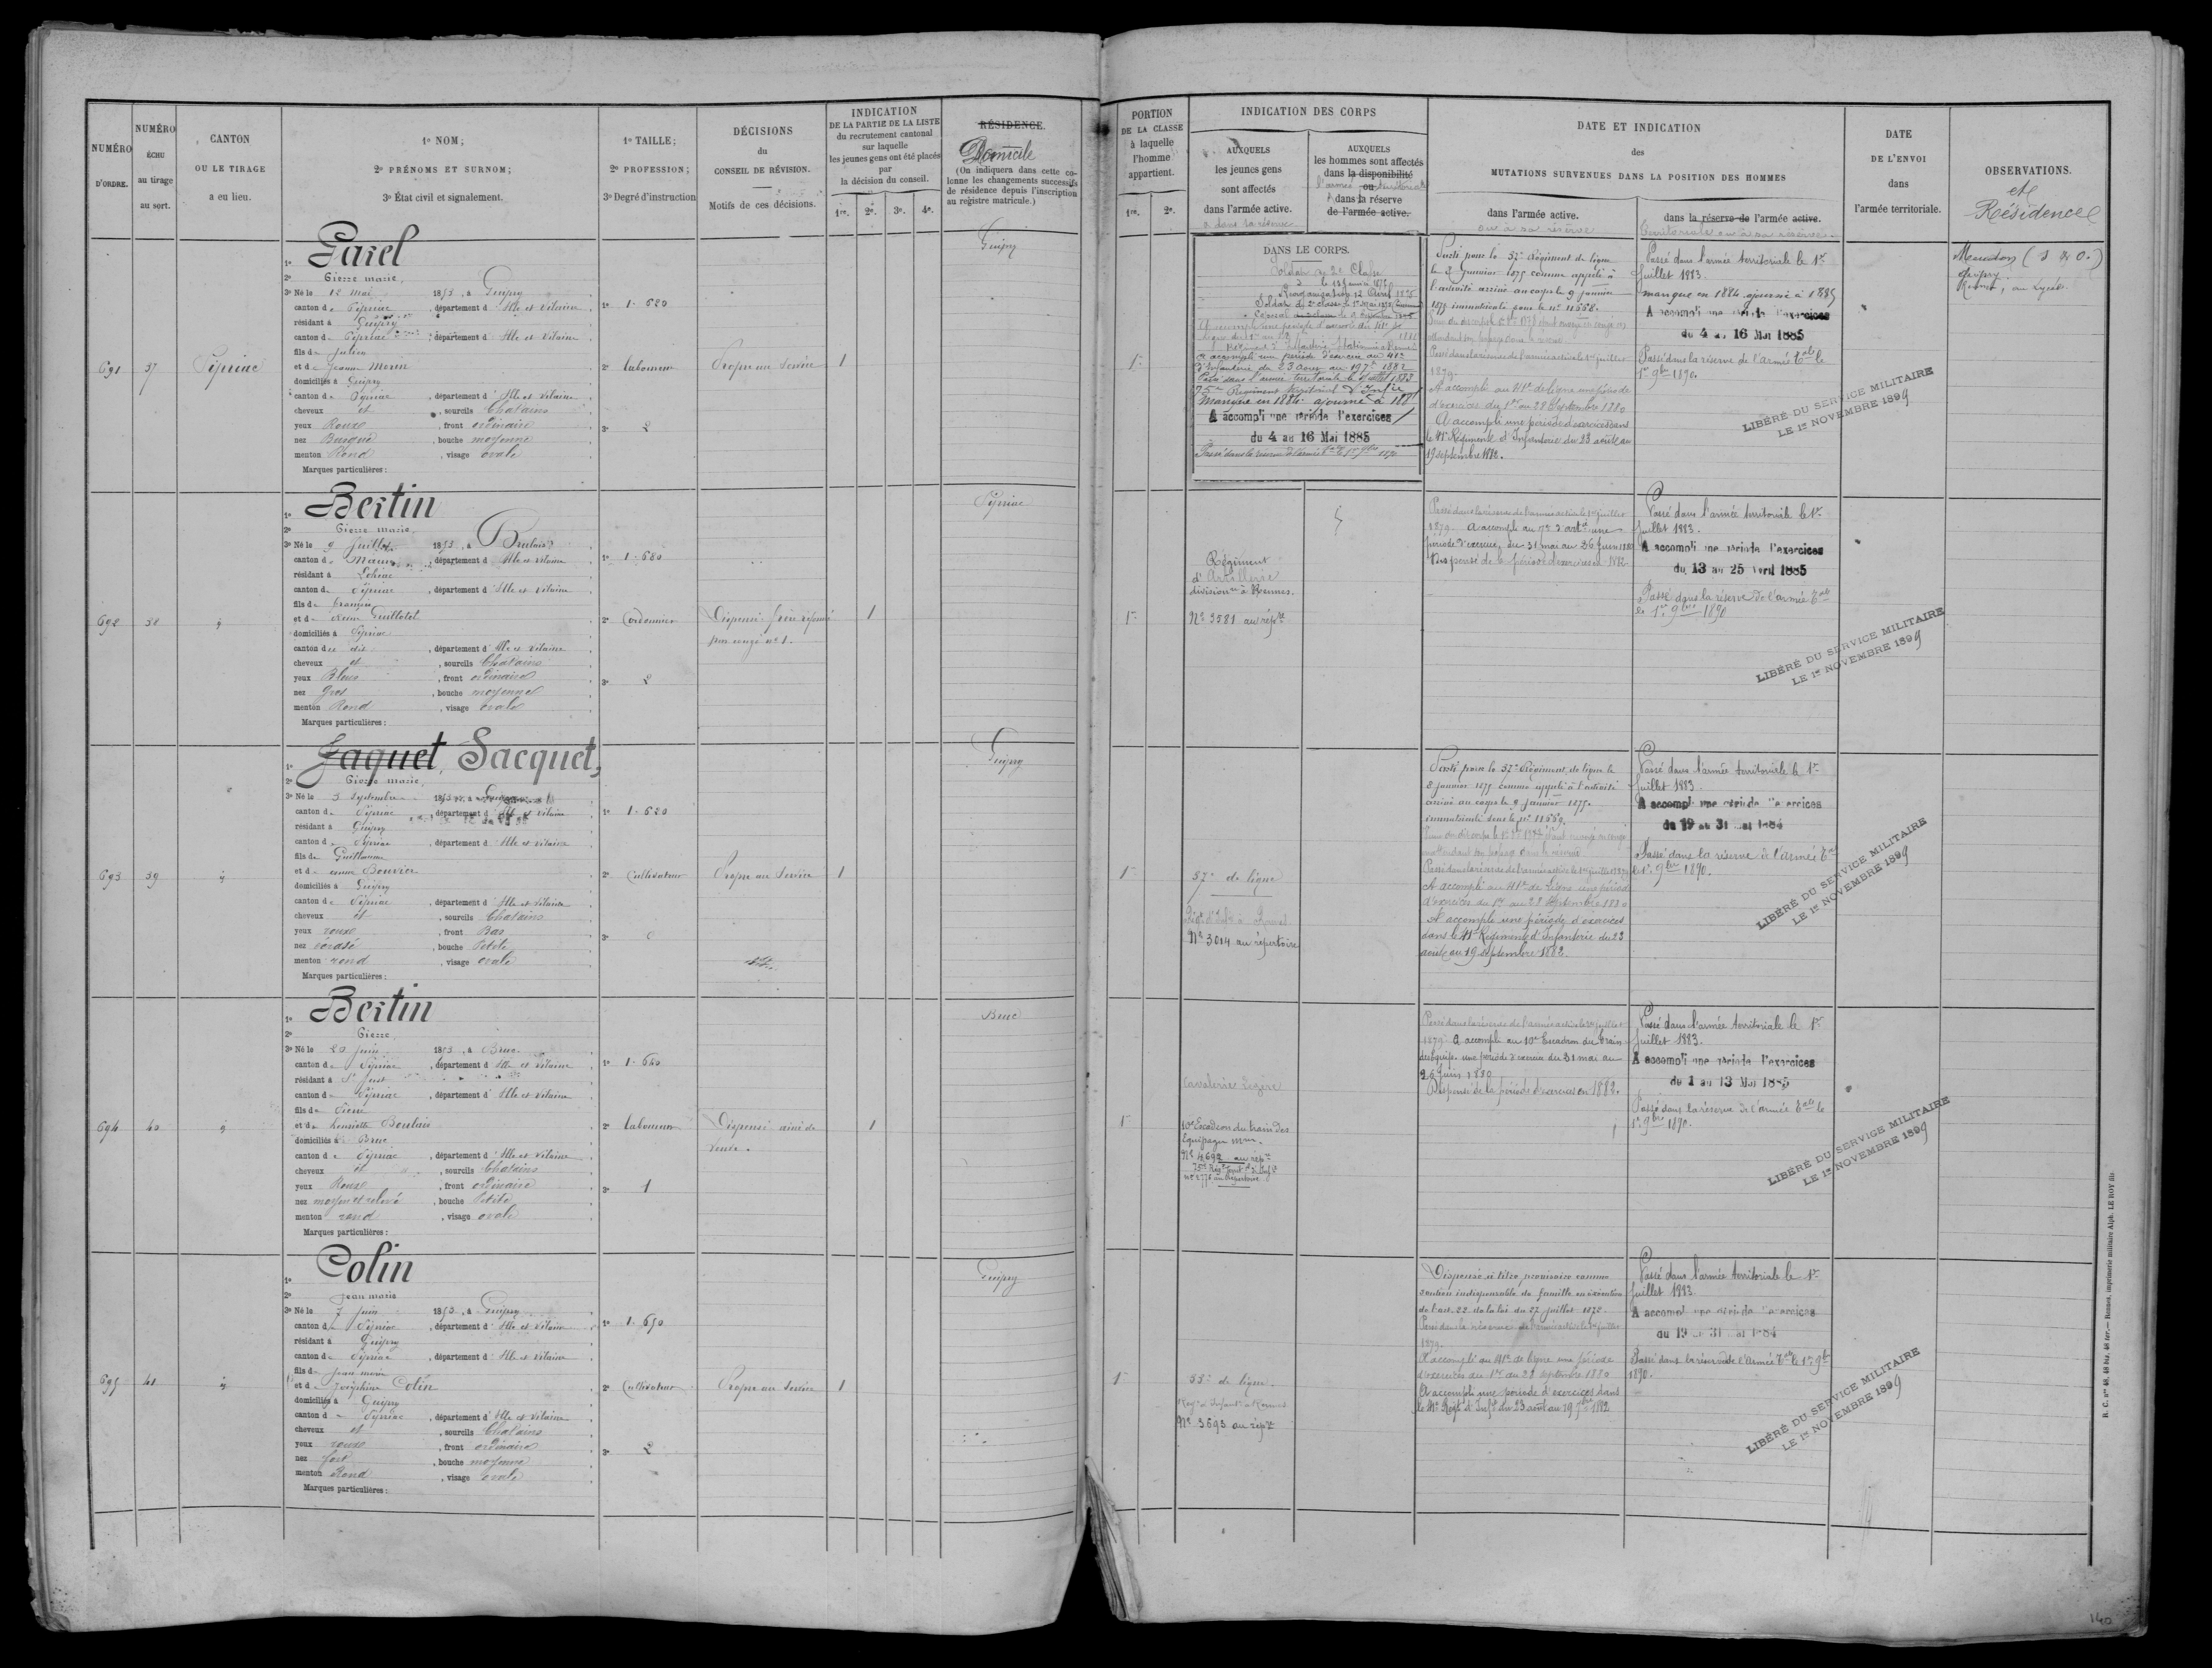 NUMÉRO
D'ORDRE.
NUMÉRO
ÉCHU
au tirage
au sort.
CANTON
OU LE TIRAGE
a eu lieu.
1º NOM;
2º PRÉNOMS ET SURNOM;
3º État civil et signalement.
1º TAILLE;
2º PROFESSION;
3º Degré d'instruction
DÉCISIONS
du
CONSEIL DE RÉVISION.
Motifs de ces décisions.
INDICATION
DE LA PARTIE DE LA LISTE
du recrutement cantonal
sur laquelle
les jeunes gens ont été placés
par
la décision du conseil.
1re. 2e. 3e. 4e.
RÉSIDENCE.
Domicile
(On indiquera dans cette co-
lonne les changements successifs
de résidence depuis l'inscription
au registre matricule.)
PORTION
DE LA CLASSE
à laquelle
l'homme
appartient.
1re. 2e.
INDICATION DES CORPS
AUXQUELS
les jeunes gens
sont affectés
dans l'armée active.
& dans la réserve
AUXQUELS
les hommes sont affectés
dans la disponibilité
ou
dans la réserve
de l'armée active.
DATE ET INDICATION
des
MUTATIONS SURVENUES DANS LA POSITION DES HOMMES
dans l'armée active.
ou à sa réserve
dans la réserve de l'armée active.
territoriale ou à sa réserve
DATE
DE L'ENVOI
dans
l'armée territoriale.
OBSERVATIONS.
et
Résidence
691
37
Pipriac
1º Garel
2º Pierre marie,
3º Né le 12 mai 1853, à Guipry
canton de Pipriac, département d'Ille et Vilaine
résidant à Guipry
canton de Pipriac, département d'Ille et Vilaine
fils de Julien
et de Jeanne Morin
domiciliés à Guipry
canton de Pipriac, département d'Ille et Vilaine
cheveux et, sourcils Chatains
yeux Roux, front ordinaire
nez Busqué, bouche moyenne
menton Rond, visage ovale
Marques particulières:
1º 1.620
2º Laboureur
3º 2
Propre au Service
1
Guipry
1re
DANS LE CORPS.
Soldat de 2e Classe
A accompli une période d'exercice au 41e
d'Infanterie du 23 Aout au 19 7bre 1882
Passé dans l'armée territoriale le 1er Juillet 1883
75e Régiment territorial d'Infie
Manque en 1884. ajourné à 1885
A accompli une période d'exercices
du 4 au 16 Mai 1885
Passé dans la réserve de l'armée tale le 1er 9bre 1890
Parti pour le 57e Régiment de ligne
le 8 Janvier 1875 comme appelé à
l'activité arrivé au corps le 9 janvier
1875 immatriculé sous le nº 11658.
Passé dans la réserve de l'armée active le 1er juillet
1879.
A accompli au 41e de ligne une période
d'exercices du 1er au 28 Septembre 1880
A accompli une période d'exercices dans
le 41e Régiment d'Infanterie du 23 août au
19 septembre 1882.
Passé dans l'armée territoriale le 1er
Juillet 1883.
manque en 1884 ajourné à 1885
A accompli une période d'exercices
du 4 au 16 Mai 1885
Passé dans la réserve de l'armée tale le
1er 9bre 1890.
LIBÉRÉ DU SERVICE MILITAIRE
LE 1er NOVEMBRE 1899
Meudon (S & O.)
Guipry
Rennes, au Lycée
692
38
1º Bertin
2º Pierre marie,
3º Né le 9 Juillet 1853, à Brulais
canton de Maure, département d'Ille et Vilaine
résidant à Lohéac
canton de Pipriac, département d'Ille et Vilaine
fils de
et de Guillotel
domiciliés à Pipriac
canton du dit, département d'Ille et Vilaine
cheveux et, sourcils Chatains
yeux Bleus, front ordinaire
nez gros, bouche moyenne
menton Rond, visage ovale
Marques particulières:
1º 1.680
2º Cordonnier
3º 2
Dispensé frère réformé
par congé nº 1.
1
Pipriac
1re
Régiment
d'Artillerie
divisionre à Rennes.
Nº 3581 au réperre
Passé dans la réserve de l'armée active le 1er juillet
1879. A accompli au 7e d'artie une
période d'exercice du 31 mai au 26 Juin 1880
Dispensé de la période d'exercices
Passé dans l'armée territoriale le 1er
Juillet 1883.
A accompli une période d'exercices
du 13 au 25 Avril 1885
Passé dans la réserve de l'armée tale
le 1er 9bre 1890
LIBÉRÉ DU SERVICE MILITAIRE
LE 1er NOVEMBRE 1899
693
39
1º Jaquet, Sacquet,
2º Pierre marie,
3º Né le 3 Septembre 1853, à Guipry
canton de Pipriac, département d'Ille et Vilaine
résidant à Guipry
canton de Pipriac, département d'Ille et Vilaine
fils de Guillaume
et de anne Bouvier
domiciliés à Guipry
canton de Pipriac, département d'Ille et Vilaine
cheveux et, sourcils Chatains
yeux roux, front Bas
nez écrasé, bouche Petite
menton rond, visage ovale
Marques particulières:
1º 1.620
2º Cultivateur
3º
Propre au Service
1
Guipry
1re
57e de ligne
Nº 3014 au répertoire
Parti pour le 57e Régiment de ligne le
8 janvier 1875 comme appelé à l'activité
arrivé au corps le 9 janvier 1875.
immatriculé sous le nº 11659.
A accompli au 41e de Ligne une période
d'exercices du 1er au 28 Septembre 1880
A accompli une période d'exercices
dans le 41e Régiment d'Infanterie du 23
août au 19 septembre 1882.
Passé dans l'armée territoriale le 1er
Juillet 1883.
A accompli une période d'exercices
du 19 au 31 Mai 1884
Passé dans la réserve de l'armée tale
le 1er 9bre 1890.
LIBÉRÉ DU SERVICE MILITAIRE
LE 1er NOVEMBRE 1899
694
40
1º Bertin
2º Pierre,
3º Né le 20 Juin 1853, à Bruc
canton de Pipriac, département d'Ille et Vilaine
résidant à St Just
canton de Pipriac, département d'Ille et Vilaine
fils de Pierre
et de Henriette Boulais
domiciliés à Bruc
canton de Pipriac, département d'Ille et Vilaine
cheveux et, sourcils Chatains
yeux Roux, front ordinaire
nez moyen et relevé, bouche Petite
menton rond, visage ovale
Marques particulières:
1º 1.640
2º Laboureur
3º 1
Dispensé ainé de
veuve.
1
Bruc
1re
Cavalerie Légère
10e Escadron du train des
Equipages mres.
Nº 4692 au répre
75e Régt territ. d'Infie
nº 2776 au Répertoire
Passé dans la réserve de l'armée active le 1er juillet
1879. A accompli au 10e Escadron du Train
des équip. une période d'exercice du 31 mai au
26 Juin 1880
Dispensé de la période d'exercices en 1882.
Passé dans l'armée territoriale le 1er
Juillet 1883.
A accompli une période d'exercices
du 1 au 13 Mai 1885
Passé dans la réserve de l'armée tale le
1er 9bre 1890.
LIBÉRÉ DU SERVICE MILITAIRE
LE 1er NOVEMBRE 1899
695
41
1º Colin
2º Jean marie
3º Né le 7 Juin 1853, à Guipry
canton de Pipriac, département d'Ille et Vilaine
résidant à Guipry
canton de Pipriac, département d'Ille et Vilaine
fils de Jean marie
et de Joséphine Colin
domiciliés à Guipry
canton de Pipriac, département d'Ille et Vilaine
cheveux et, sourcils Chatains
yeux roux, front ordinaire
nez fort, bouche moyenne
menton Rond, visage ovale
Marques particulières:
1º 1.650
2º Cultivateur
3º 2
Propre au Service
1
Guipry
1re
53e de ligne.
Nº 3693 au réperre
Dispensé à titre provisoire comme
soutien indispensable de famille en exécution
de l'art. 22 de la loi du 27 juillet 1872.
Passé dans la réserve de l'armée active le 1er juillet
1879.
A accompli au 41e de ligne une période
d'exercices du 1er au 28 septembre 1880
A accompli une période d'exercices dans
le 41e Régt d'Infie du 23 août au 19 7bre 1882
Passé dans l'armée territoriale le 1er
Juillet 1883.
A accompli une période d'exercices
du 19 au 31 Mai 1884
Passé dans la réserve de l'armée tale le 1er 9bre
1890.
LIBÉRÉ DU SERVICE MILITAIRE
LE 1er NOVEMBRE 1899
R. C. nos 48, 48 bis, 48 ter. — Rennes, imprimerie militaire Alph. LE ROY fils
140